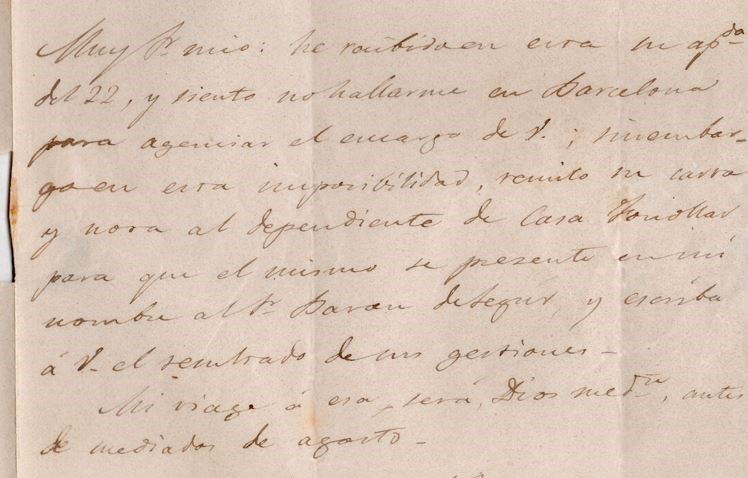 Muy Sr. mio: he recibido en esta su apda
del 22, y siento no hallarme en Barcelona
para agenciar el encargo de V.; sinembar-
go en esta imposibilidad, remito su carta
y nota al dependiente de Casa Fonollar
para que el mismo se presente en mi
nombre al Sr. Baron de Segur, y escriba
á V. el resultado de sus gestiones -
Mi viage á esa, será, Dios medte, antes
de mediados de agosto -